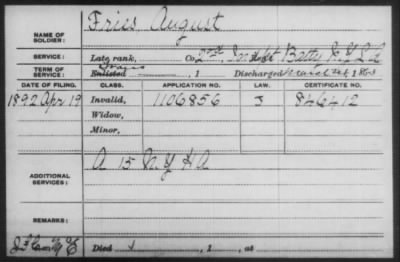 NAME OF SOLDIER: Fries August
SERVICE: Late rank, Co. 2nd Ind't Batty N.Y. L.A.
TERM OF SERVICE: Enlisted , 1 Discharged 186
DATE OF FILING. CLASS. APPLICATION NO. LAW. CERTIFICATE NO.
1892 Apr 19 Invalid, 1106856 J 846412
Widow,
Minor,
ADDITIONAL SERVICES: A 15 N.Y. H A
REMARKS:
Died , 1 , at